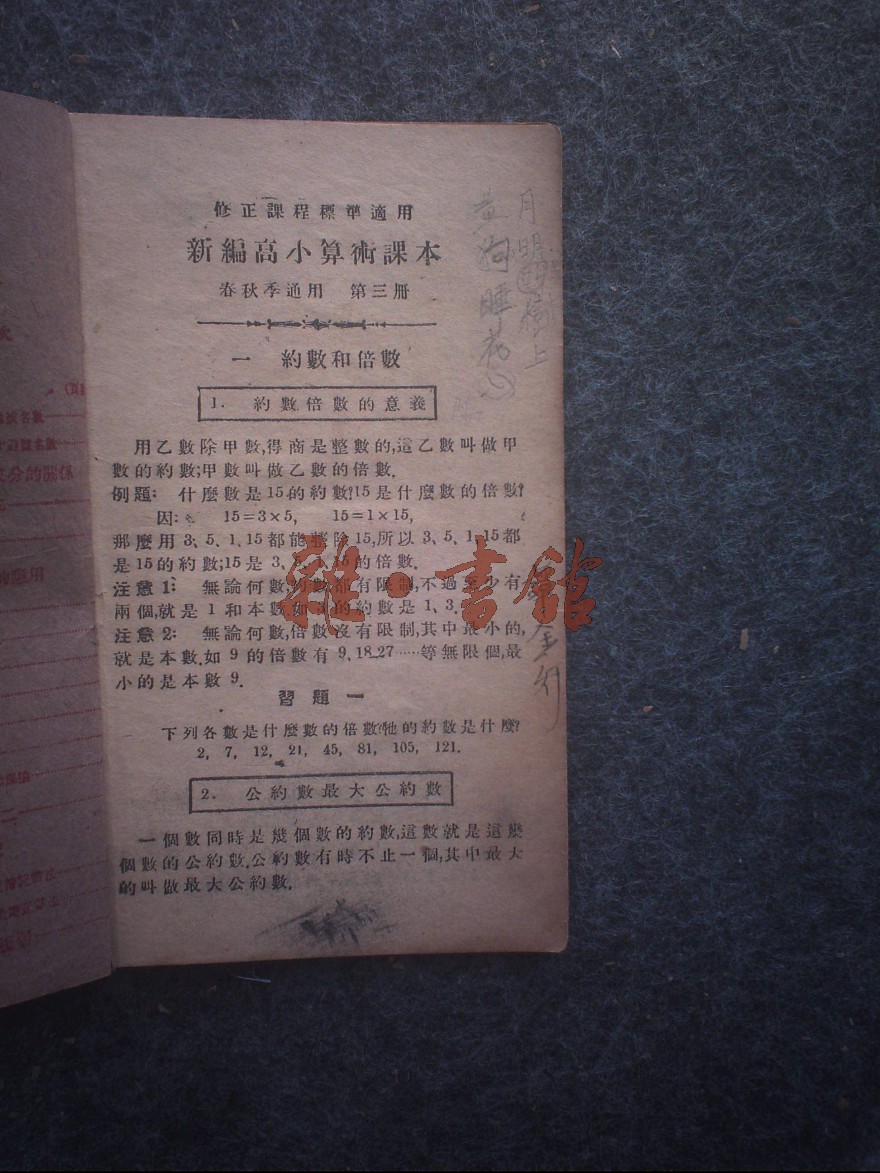 修正課程標準適用
新編高小算術課本
春秋季通用 第三册
一 約數和倍數
1. 約數倍數的意義
用乙數除甲數,得商是整數的,這乙數叫做甲
數的約數;甲數叫做乙數的倍數.
例題: 什麼數是15的約數?15是什麼數的倍數?
因: 15=3×5, 15=1×15,
那麼用3、5、1、15都能整除15,所以3、5、1、15都
是15的約數;15是3、5、1、15的倍數.
注意1: 無論何數,約數都有限制,不過至少有
兩個,就是1和本數.如3的約數是1、3.
注意2: 無論何數,倍數沒有限制,其中最小的,
就是本數.如9的倍數有9、18、27……等無限個,最
小的是本數9.
習題一
下列各數是什麼數的倍數?牠的約數是什麼?
2, 7, 12, 21, 45, 81, 105, 121.
2. 公約數最大公約數
一個數同時是幾個數的約數,這數就是這幾
個數的公約數.公約數有時不止一個,其中最大
的叫做最大公約數.
月明樹上
黃狗睡花心
雜·書館